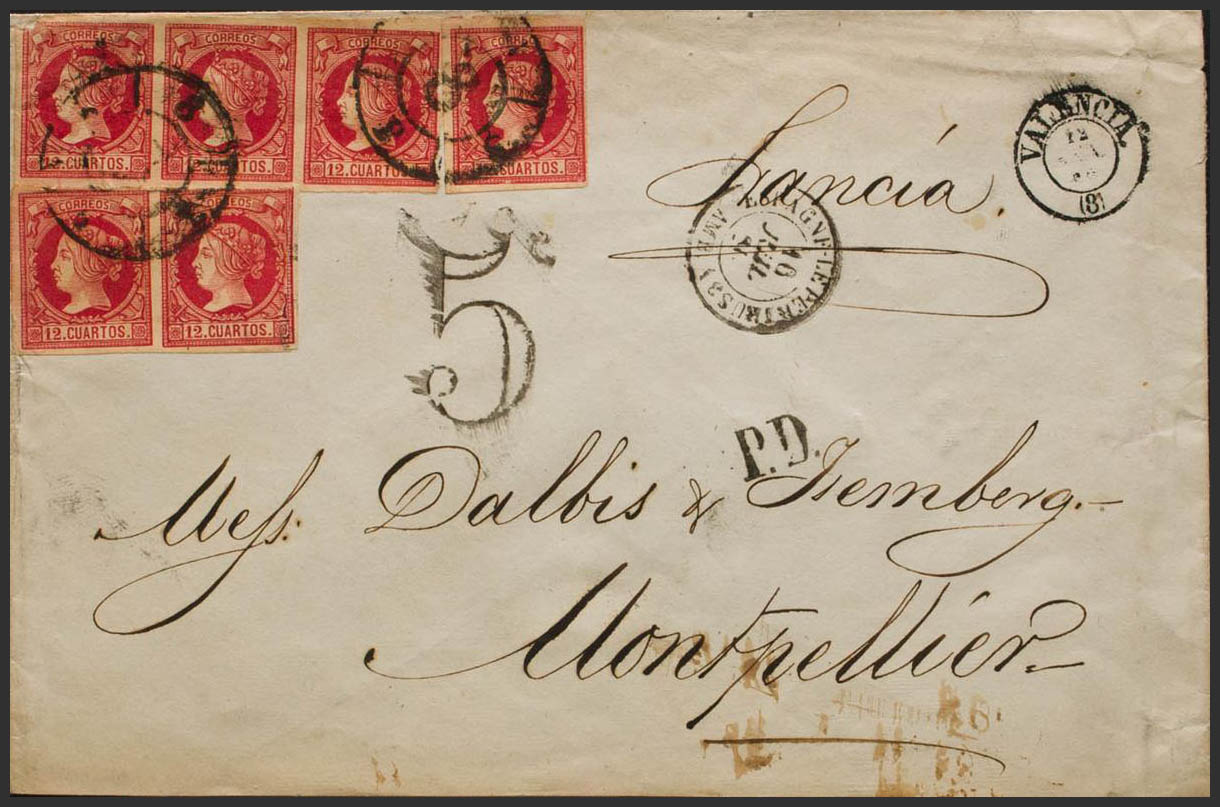 CORREOS CORREOS CORREOS CORREOS
12 CUARTOS. 12 CUARTOS. 12 CUARTOS. 12 CUARTOS.
CORREOS CORREOS
12 CUARTOS. 12 CUARTOS.
8
8
Francia.
VALENCIA
12
(8)
ESPAGNE-LE PERTHUS
AMB
16
5
P.D.
Mess. Dalbis &
Montpellier